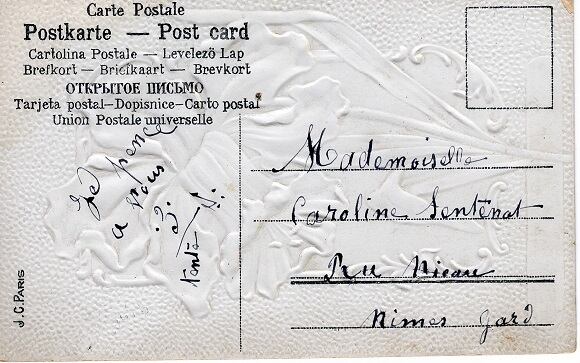 Carte Postale
Postkarte — Post card
Cartolina Postale — Levelező Lap
Brefkort — Briefkaart — Brevkort
ОТКРЫТОЕ ПИСЬМО
Tarjeta postal—Dopisnice—Carto postal
Union Postale universelle
Je pence
a vous
J. S.
Mademoiselle
Caroline Senténat
Ru
Nimes Gard
J.C. PARIS